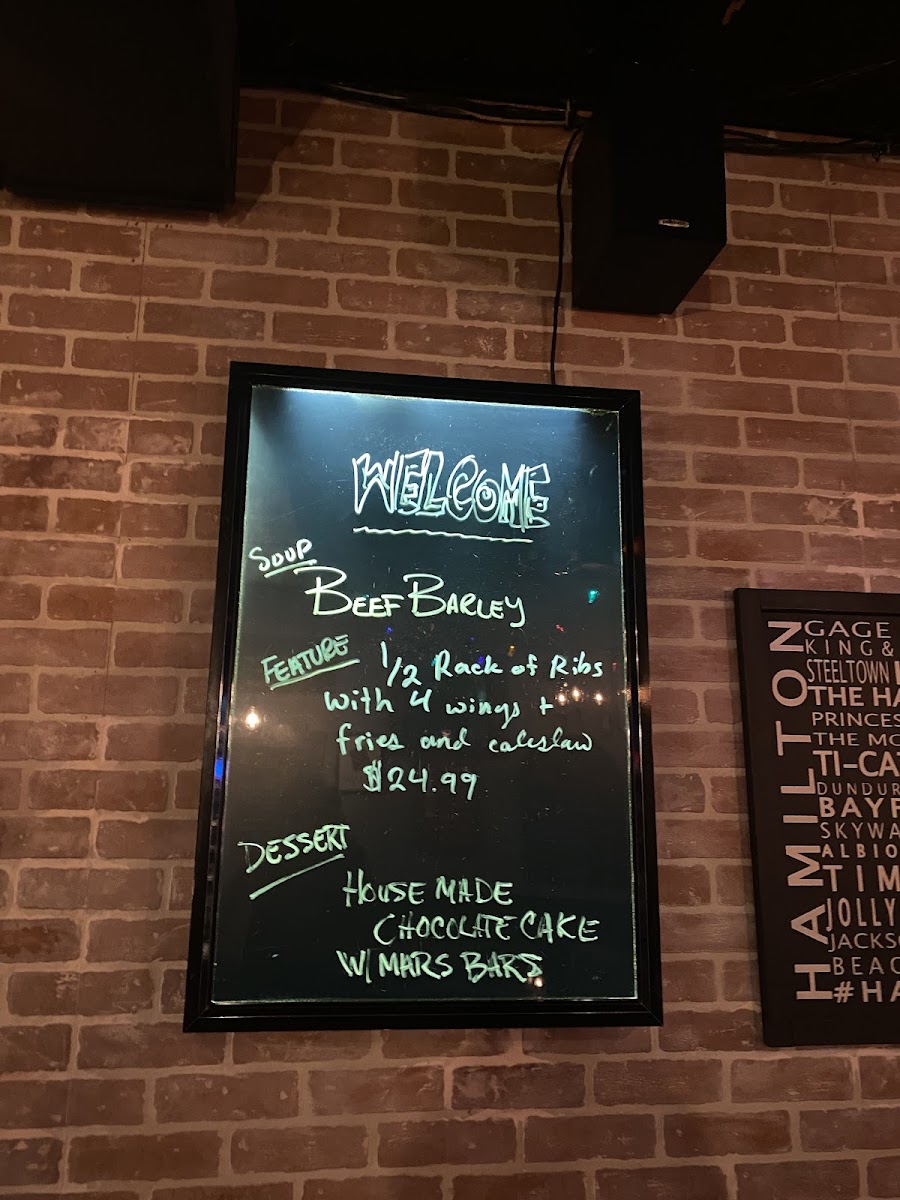 WELCOME
SOUP
BEEF BARLEY
FEATURE
1/2 Rack of Ribs
with 4 wings +
fries and coleslaw
$24.99
DESSERT
HOUSE MADE
CHOCOLATE CAKE
W/ MARS BARS
HAMILTON
GAGE
KING &
STEELTOWN
THE HA
PRINCES
THE MO
TI-CA
DUNDUR
BAYF
SKYWA
ALBIO
TIM
JOLLY
JACKSO
BEAC
#HA